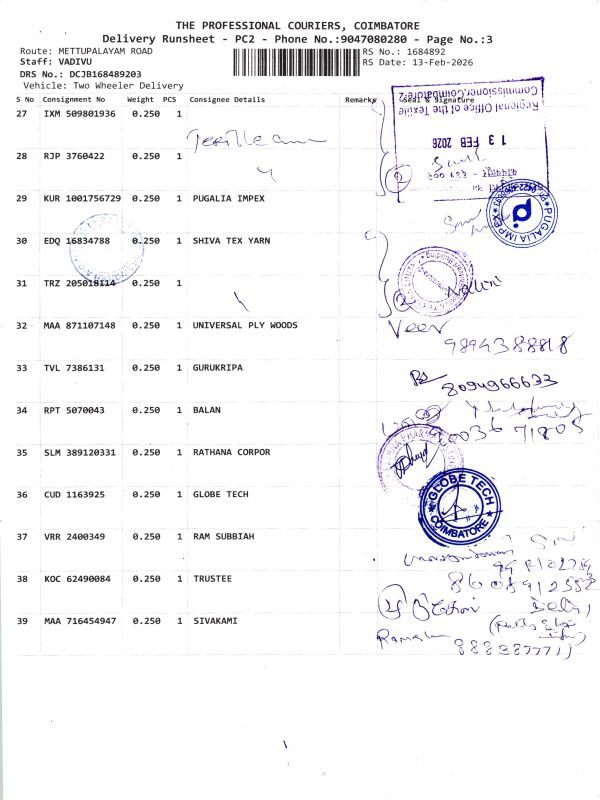 THE PROFESSIONAL COURIERS, COIMBATORE
Delivery Runsheet - PC2 - Phone No.:9047080280 - Page No.:3
Route: METTUPALAYAM ROAD
RS No.: 1684892
Staff: VADIVU
RS Date: 13-Feb-2026
DRS No.: DCJB168489203
Vehicle: Two Wheeler Delivery
S No Consignment No Weight PCS Consignee Details Remarks Seal & Signature
Regional Office of the Textile
Commissioner, Coimbatore-2
13 FEB 2026
27 IXM 509801936 0.250 1
28 RJP 3760422 0.250 1
29 KUR 1001756729 0.250 1 PUGALIA IMPEX
PUGALIA IMPEX
30 EDQ 16834788 0.250 1 SHIVA TEX YARN
31 TRZ 205018114 0.250 1
Nalini
32 MAA 871107148 0.250 1 UNIVERSAL PLY WOODS
Veer
9894388818
33 TVL 7386131 0.250 1 GURUKRIPA
8094966633
34 RPT 5070043 0.250 1 BALAN
35 SLM 389120331 0.250 1 RATHANA CORPOR
36 CUD 1163925 0.250 1 GLOBE TECH
GLOBE TECH
COIMBATORE
37 VRR 2400349 0.250 1 RAM SUBBIAH
38 KOC 62490084 0.250 1 TRUSTEE
39 MAA 716454947 0.250 1 SIVAKAMI